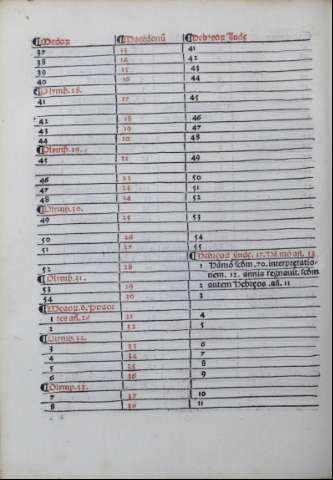 ¶Medoꝝ ¶Macedonū ¶Hebreoꝝ Iude
37 13 41
38 14 42
39 15 43
40 16 44
¶Olymp. 28.
41 17 45
42 18 46
43 19 47
44 20 48
¶Olimp. 29.
45 21 49
46 22 50
47 23 51
48 24 52
¶Olimp. 30.
49 25 53
50 26 54
51 27 55
¶Hebreoꝝ Iude. 17.
52 28 1 scḋm .70. interpretatio-
¶Olimp. 31. nem. 12. annis regnauit. scḋm
53 29 2 autem Hebreos. añ. 11
54 30 3
¶Medoꝝ. 6.
1 31 4
2 32 5
¶Olimp. 32.
3 33 6
4 34 7
5 35 8
6 36 9
¶Olimp. 33.
7 37 10
8 38 11